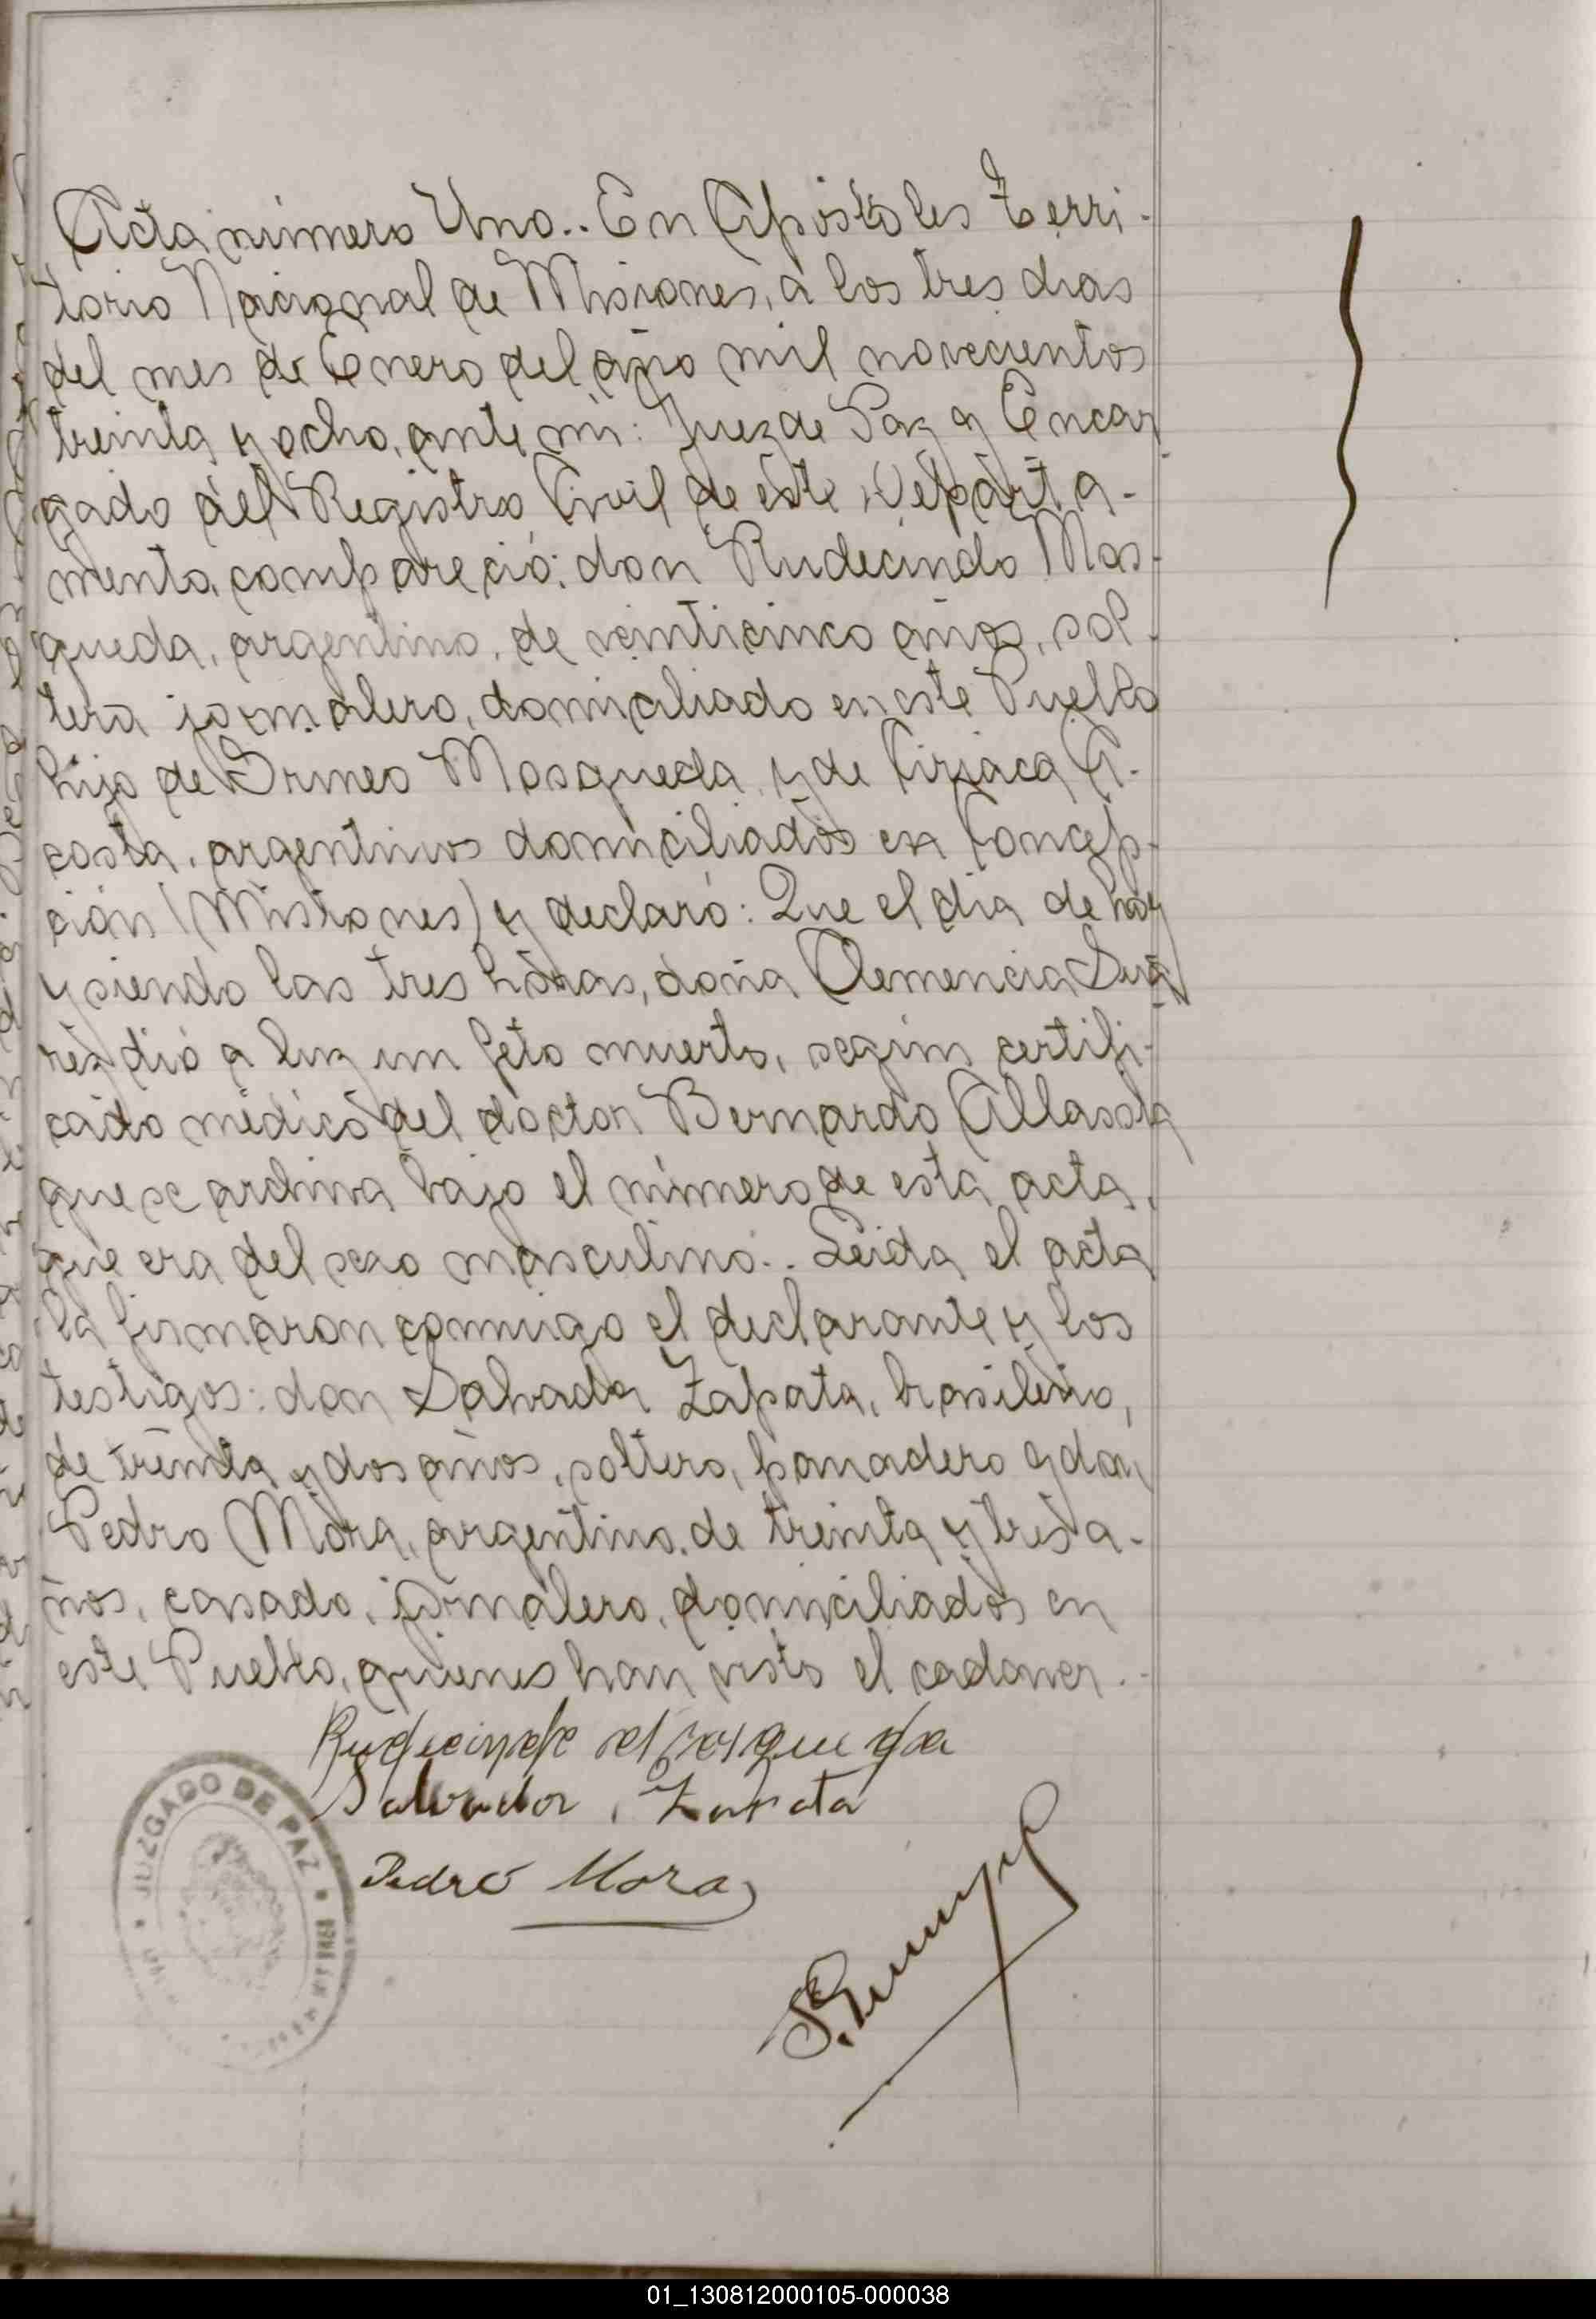 Acta número Uno.. En Apóstoles Terri-
torio Nacional de Misiones, a los tres dias
del mes de Enero del año mil novecientos
treinta y ocho, ante mi: Juez de Paz y Encar
gado del Registro Civil de este Departa-
mento, compareció: don Rudecindo Mos-
queda, argentino, de veinticinco años, sol-
tero jornalero, domiciliado en este Pueblo
hijo de Mosqueda y de Ciriaca A-
costa, argentinos domiciliados en Concep-
ción (Misiones) y declaró: Que el dia de hoy
y siendo las tres horas, doña Clemencia Sua
rez dió a luz un feto muerto, según certifi-
cado médico del doctor Bernardo Allasola
que se archiva bajo el número de esta acta,
que era del sexo masculino.. Leida el acta
la firmaron conmigo el declarante y los
testigos: don Salvador Zapata, brasileño,
de treinta y dos años, soltero, panadero y don
Pedro Mora, argentino, de treinta y tres a-
ños, casado, jornalero, domiciliados en
este Pueblo, quienes han visto el cadaver.-
Rudecindo Mosqueda
Salvador Zapata
Pedro Mora
JUZGADO DE PAZ
01_130812000105-000038